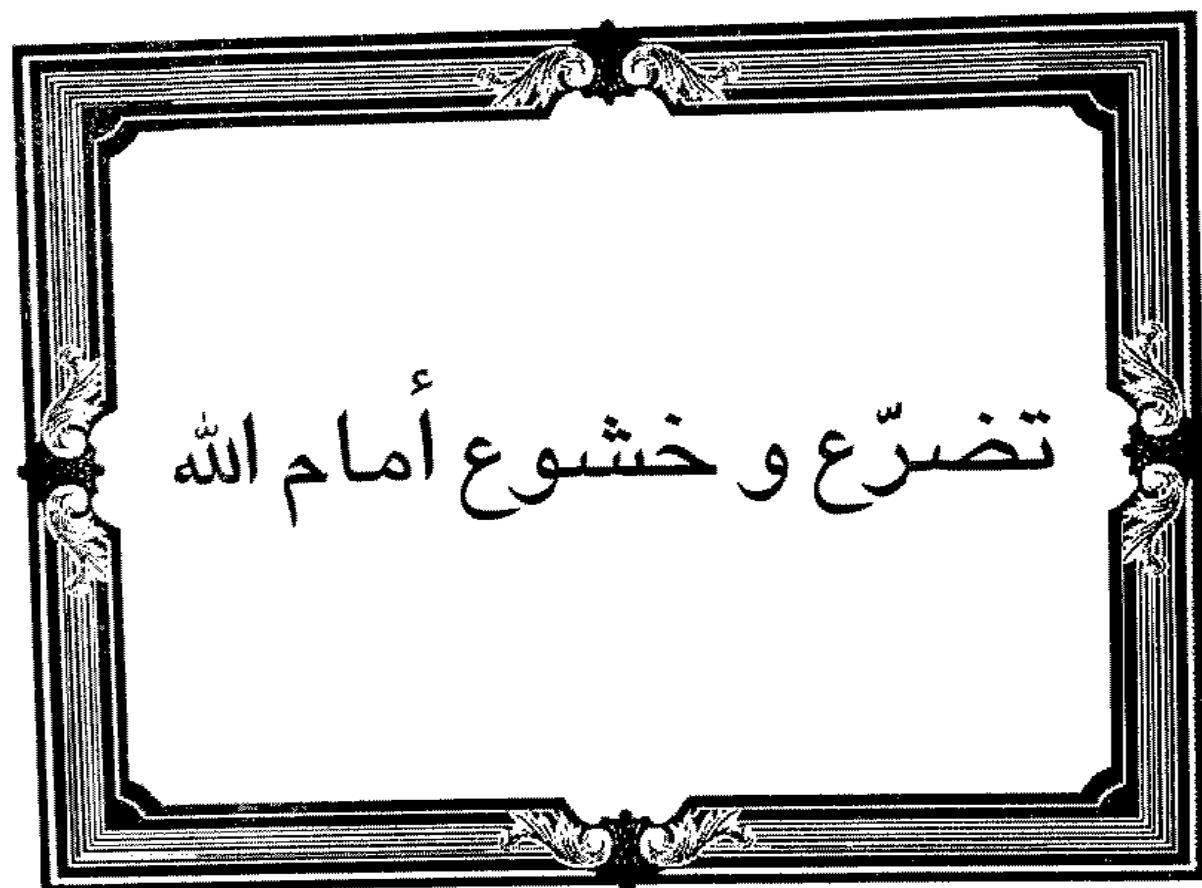 تضرّع و خشوع أمام الله